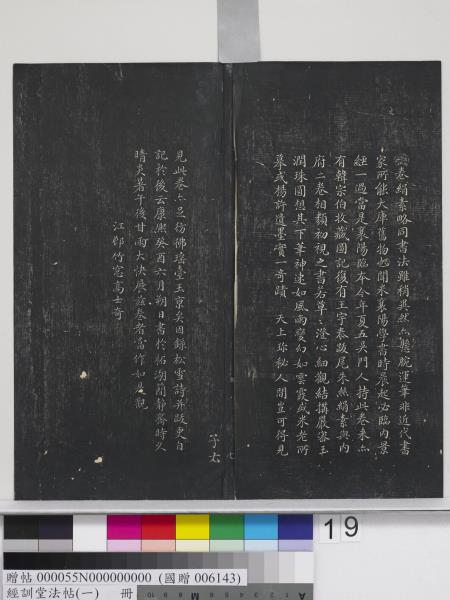 卷絹素略同書法雖稍異然亦懸腕運筆非近代書
家所能大庫舊物也聞米襄陽學書時晨起必臨內景
經一過當是襄陽臨本今年夏五吳門人持此卷來亦
有韓宗伯收藏國記復有王宇泰跋尾朱絲絹素與內
府二卷相類初視之書若草草澄心細觀結搆嚴密玉
潤珠圓想其下筆神速如風雨變幻如雲霞或米老所
摹或楊許遺墨實一奇蹟 天上珍秘人間豈可得見
見此卷亦足彷彿瑤臺玉京矣因錄松雪詩并跋更自
記於後云康熙癸酉六月朔日書於柘湖簡靜齋時久
晴炎暑午後甘雨大快展玆卷者當作如是觀
江邨竹窗高士奇
子太
19
贈帖 000055N000000000 (國贈 006143)
經訓堂法帖(一) 冊